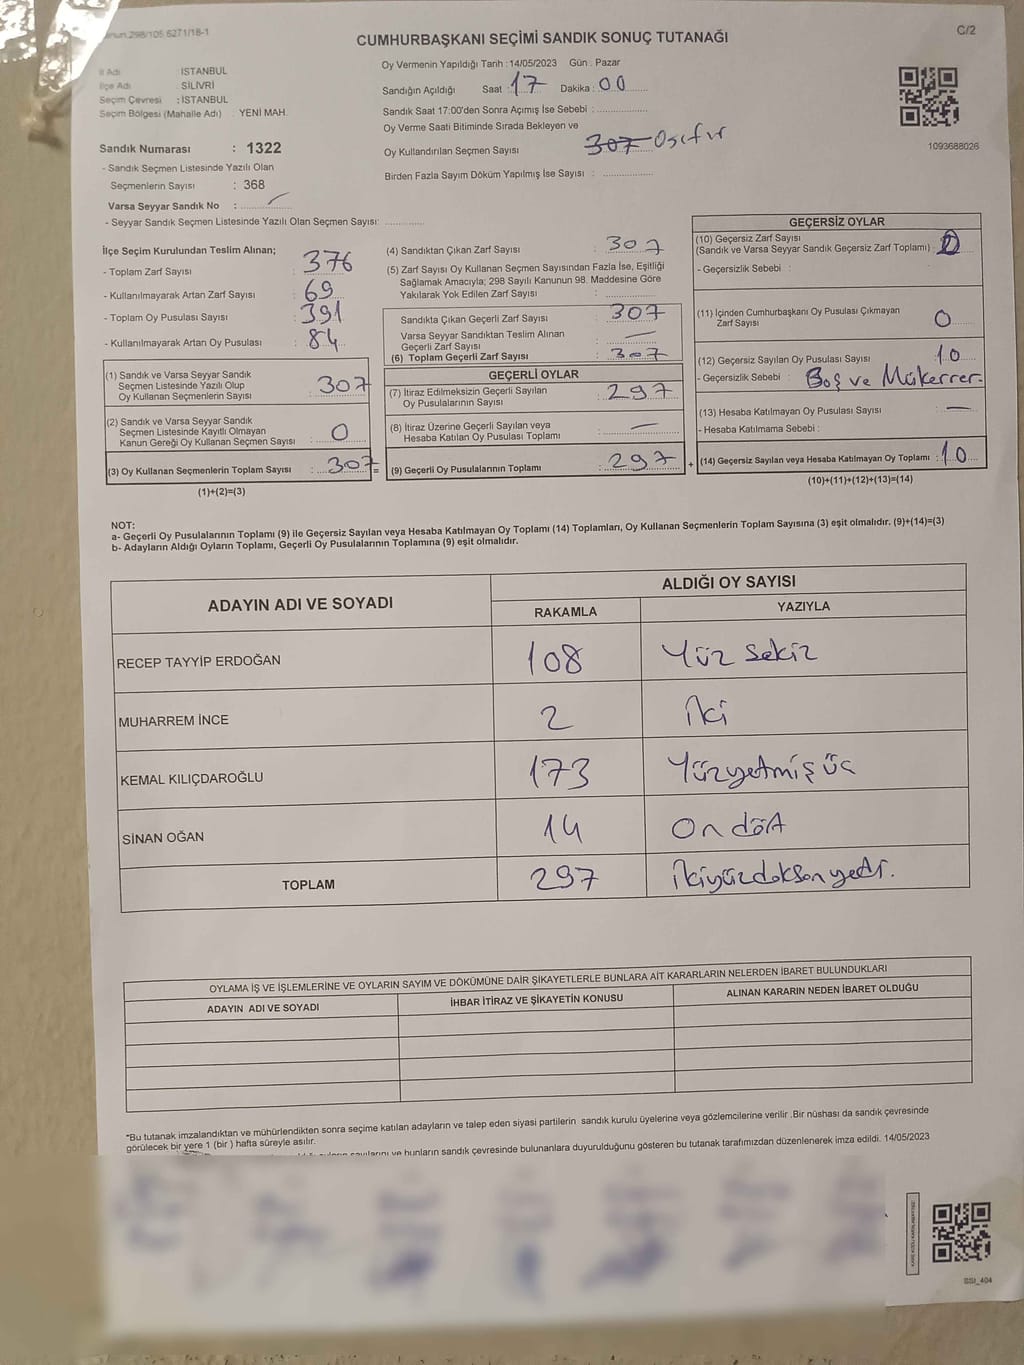 298/105.6271/18-1
C/2
CUMHURBAŞKANI SEÇİMİ SANDIK SONUÇ TUTANAĞI
İl Adı : İSTANBUL
İlçe Adı : SİLİVRİ
Seçim Çevresi : İSTANBUL
Seçim Bölgesi (Mahalle Adı) : YENİ MAH.
Sandık Numarası : 1322
- Sandık Seçmen Listesinde Yazılı Olan
Seçmenlerin Sayısı : 368
Varsa Seyyar Sandık No :
- Seyyar Sandık Seçmen Listesinde Yazılı Olan Seçmen Sayısı:
Oy Vermenin Yapıldığı Tarih : 14/05/2023 Gün : Pazar
Sandığın Açıldığı Saat : 17 Dakika : 00
Sandık Saat 17:00'den Sonra Açımış İse Sebebi :
Oy Verme Saati Bitiminde Sırada Bekleyen ve
Oy Kullandırılan Seçmen Sayısı 307 0 sıfır
Birden Fazla Sayım Döküm Yapılmış İse Sayısı :
1093688026
İlçe Seçim Kurulundan Teslim Alınan;
- Toplam Zarf Sayısı : 376
- Kullanılmayarak Artan Zarf Sayısı : 69
- Toplam Oy Pusulası Sayısı : 391
- Kullanılmayarak Artan Oy Pusulası : 84
(1) Sandık ve Varsa Seyyar Sandık
Seçmen Listesinde Yazılı Olup
Oy Kullanan Seçmenlerin Sayısı : 307
(2) Sandık ve Varsa Seyyar Sandık
Seçmen Listesinde Kayıtlı Olmayan
Kanun Gereği Oy Kullanan Seçmen Sayısı : 0
(3) Oy Kullanan Seçmenlerin Toplam Sayısı : 307 =
(1)+(2)=(3)
(4) Sandıktan Çıkan Zarf Sayısı : 307
(5) Zarf Sayısı Oy Kullanan Seçmen Sayısından Fazla İse, Eşitliği
Sağlamak Amacıyla; 298 Sayılı Kanunun 98. Maddesine Göre
Yakılarak Yok Edilen Zarf Sayısı :
Sandıkta Çıkan Geçerli Zarf Sayısı : 307
Varsa Seyyar Sandıktan Teslim Alınan
Geçerli Zarf Sayısı : —
(6) Toplam Geçerli Zarf Sayısı : 307
GEÇERLİ OYLAR
(7) İtiraz Edilmeksizin Geçerli Sayılan
Oy Pusulalarının Sayısı : 297
(8) İtiraz Üzerine Geçerli Sayılan veya
Hesaba Katılan Oy Pusulası Toplamı : —
(9) Geçerli Oy Pusulalarının Toplamı : 297 +
GEÇERSİZ OYLAR
(10) Geçersiz Zarf Sayısı
(Sandık ve Varsa Seyyar Sandık Geçersiz Zarf Toplamı) :
- Geçersizlik Sebebi :
(11) İçinden Cumhurbaşkanı Oy Pusulası Çıkmayan
Zarf Sayısı : 0
(12) Geçersiz Sayılan Oy Pusulası Sayısı : 10
- Geçersizlik Sebebi : Boş ve Mükerrer.
(13) Hesaba Katılmayan Oy Pusulası Sayısı : —
- Hesaba Katılmama Sebebi :
(14) Geçersiz Sayılan veya Hesaba Katılmayan Oy Toplamı : 10
(10)+(11)+(12)+(13)=(14)
NOT:
a- Geçerli Oy Pusulalarının Toplamı (9) ile Geçersiz Sayılan veya Hesaba Katılmayan Oy Toplamı (14) Toplamları, Oy Kullanan Seçmenlerin Toplam Sayısına (3) eşit olmalıdır. (9)+(14)=(3)
b- Adayların Aldığı Oyların Toplamı, Geçerli Oy Pusulalarının Toplamına (9) eşit olmalıdır.
ADAYIN ADI VE SOYADI
ALDIĞI OY SAYISI
RAKAMLA YAZIYLA
RECEP TAYYİP ERDOĞAN 108 Yüz sekiz
MUHARREM İNCE 2 İki
KEMAL KILIÇDAROĞLU 173 Yüzyetmiş üç
SİNAN OĞAN 14 On dört
TOPLAM 297 İkiyüzdoksan yedi.
OYLAMA İŞ VE İŞLEMLERİNE VE OYLARIN SAYIM VE DÖKÜMÜNE DAİR ŞİKAYETLERLE BUNLARA AİT KARARLARIN NELERDEN İBARET BULUNDUKLARI
ADAYIN ADI VE SOYADI İHBAR İTİRAZ VE ŞİKAYETİN KONUSU ALINAN KARARIN NEDEN İBARET OLDUĞU
*Bu tutanak imzalandıktan ve mühürlendikten sonra seçime katılan adayların ve talep eden siyasi partilerin sandık kurulu üyelerine veya gözlemcilerine verilir .Bir nüshası da sandık çevresinde
görülecek bir yere 1 (bir ) hafta süreyle asılır.
ve bunların sandık çevresinde bulunanlara duyurulduğunu gösteren bu tutanak tarafımızdan düzenlenerek imza edildi. 14/05/2023
SSI_404